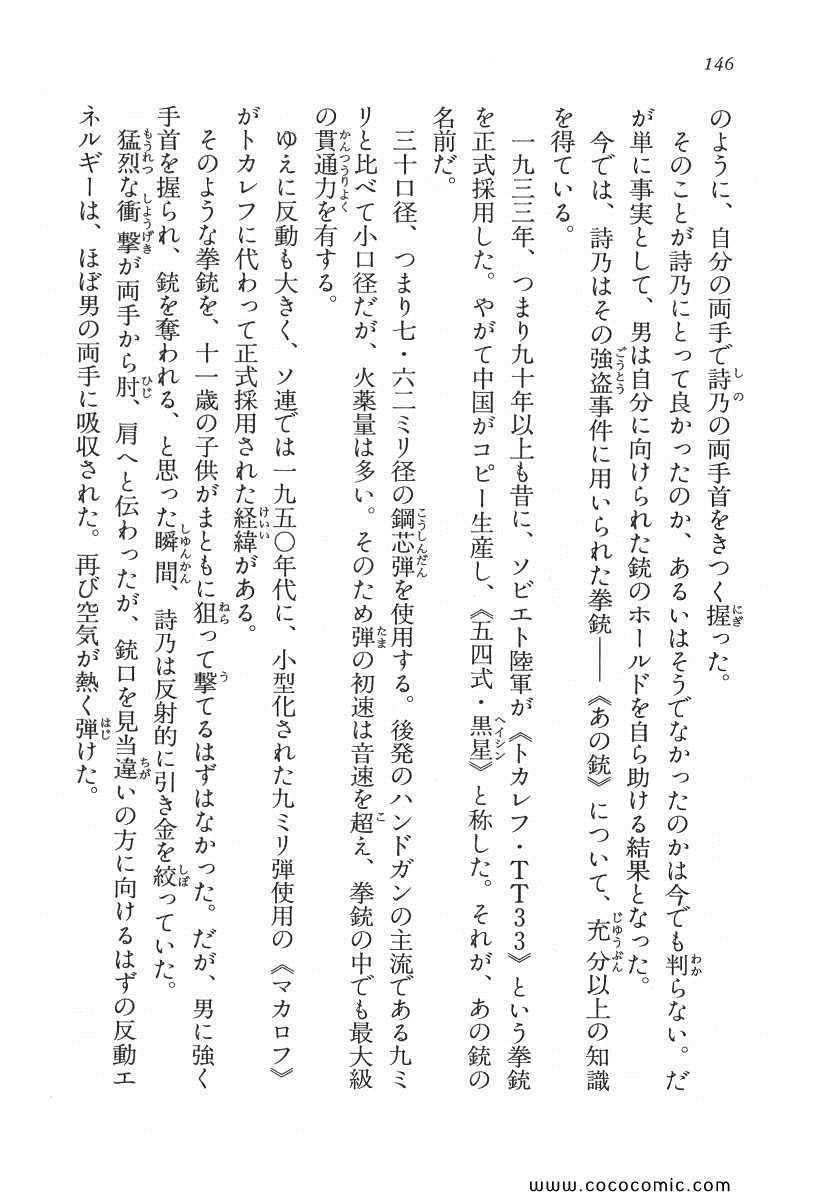 146
のように、自分の両手で詩乃の両手首をきつく握った。
そのことが詩乃にとって良かったのか、あるいはそうでなかったのかは今でも判らない。だ
が単に事実として、男は自分に向けられた銃のホールドを自ら助ける結果となった。
今では、詩乃はその強盗事件に用いられた拳銃――《あの銃》について、充分以上の知識
を得ている。
一九三三年、つまり九十年以上も昔に、ソビエト陸軍が《トカレフ・ＴＴ３３》という拳銃
を正式採用した。やがて中国がコピー生産し、《五四式・黒星》と称した。それが、あの銃の
名前だ。
三十口径、つまり七・六二ミリ径の鋼芯弾を使用する。後発のハンドガンの主流である九ミ
リと比べて小口径だが、火薬量は多い。そのため弾の初速は音速を超え、拳銃の中でも最大級
の貫通力を有する。
ゆえに反動も大きく、ソ連では一九五〇年代に、小型化された九ミリ弾使用の《マカロフ》
がトカレフに代わって正式採用された経緯がある。
そのような拳銃を、十一歳の子供がまともに狙って撃てるはずはなかった。だが、男に強く
手首を握られ、銃を奪われる、と思った瞬間、詩乃は反射的に引き金を絞っていた。
猛烈な衝撃が両手から肘、肩へと伝わったが、銃口を見当違いの方に向けるはずの反動エ
ネルギーは、ほぼ男の両手に吸収された。再び空気が熱く弾けた。
www.cococomic.com